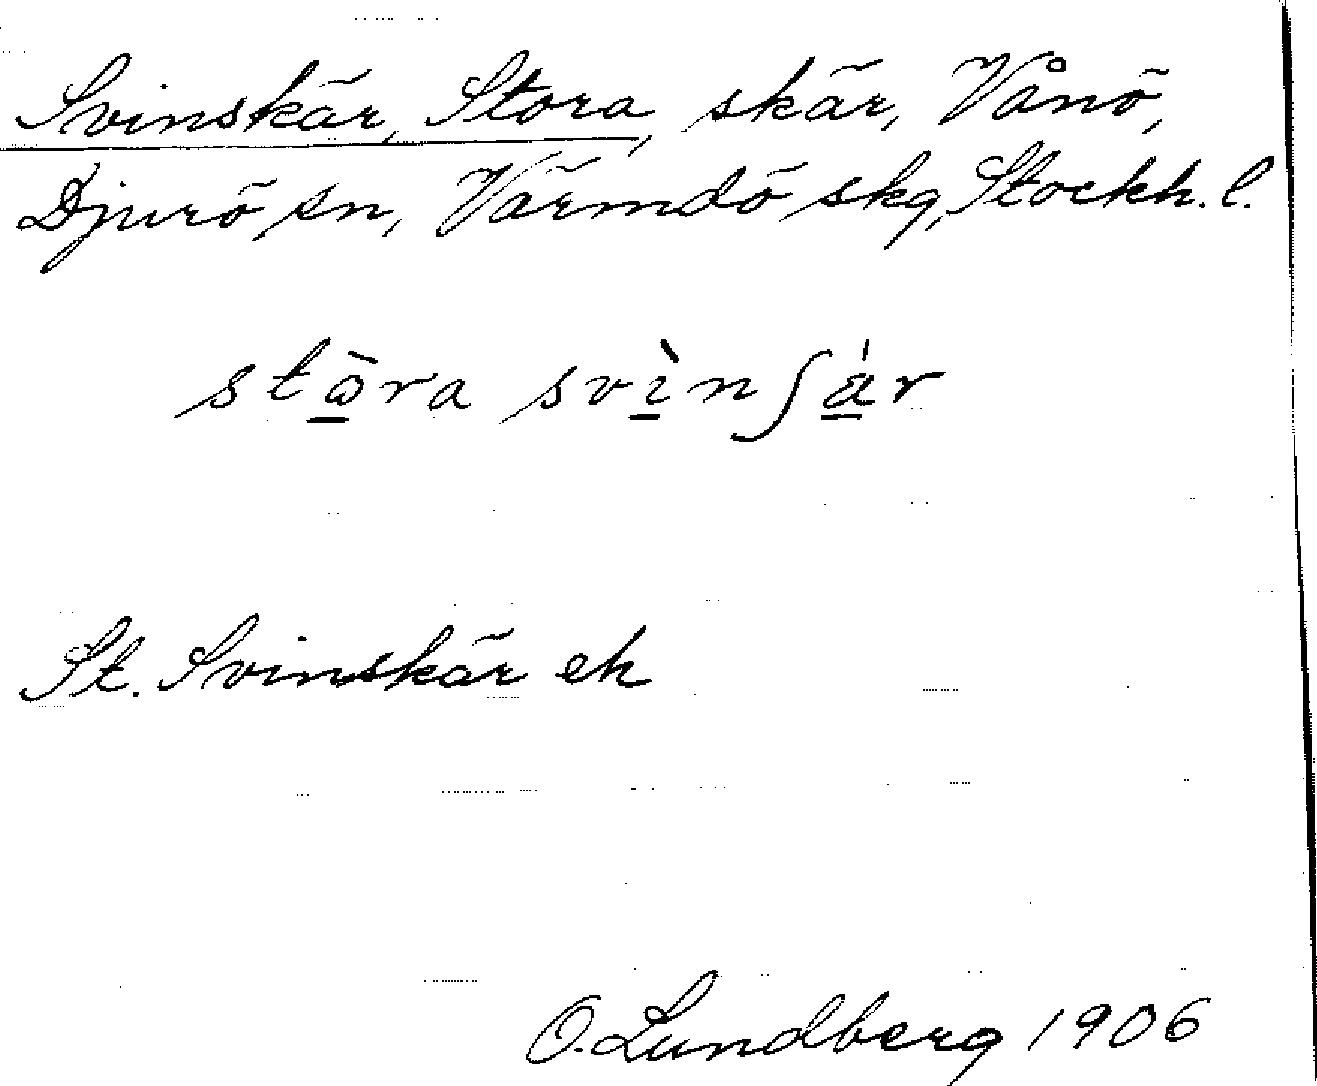 Svinskär, Stora, skär, Vånö,
Djurö sn, Värmdö skg, Stockh. l.
stὼra svìnʃár
St. Svinskär ek
O. Lundberg 1906